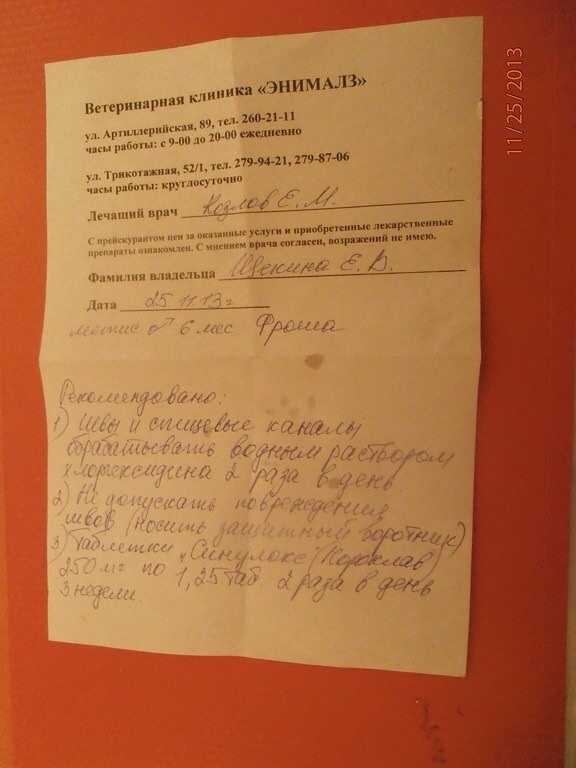 Ветеринарная клиника «ЭНИМАЛЗ»
ул. Артиллерийская, 89, тел. 260-21-11
часы работы: с 9-00 до 20-00 ежедневно
ул. Трикотажная, 52/1, тел. 279-94-21, 279-87-06
часы работы: круглосуточно
Лечащий врач Козлов Е. М.
С прейскурантом цен за оказанные услуги и приобретенные лекарственные
препараты ознакомлен. С мнением врача согласен, возражений не имею.
Фамилия владельца Щекина Е. В.
Дата 25.11.13г
метис ♂ 6 мес. Фроша
Рекомендовано:
1) Швы и спицевые каналы
обрабатывать водным раствором
хлоргексидина 2 раза в день
2) Не допускать повреждения
швов (носить защитный воротник)
3) Таблетки „Синулокс (Нороклав)
250мг по 1,25 таб 2 раза в день
3 недели.
11/25/2013